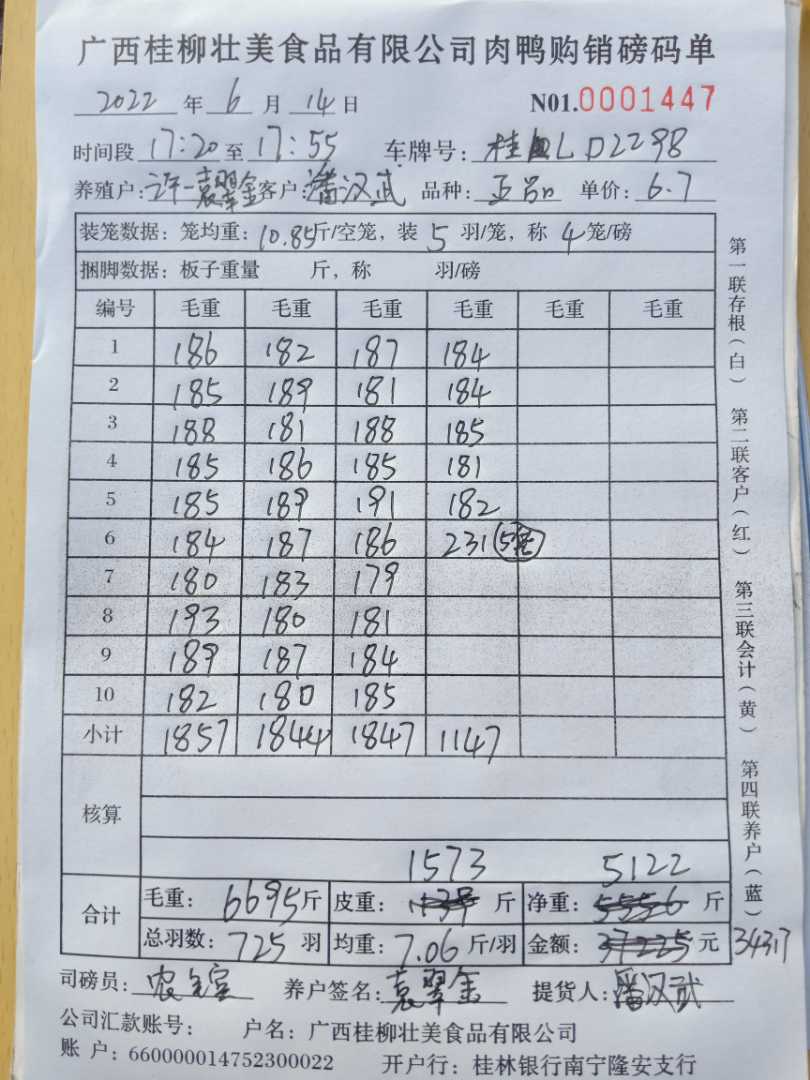 广西桂柳壮美食品有限公司肉鸭购销磅码单
2022 年 6 月 14 日 N01.0001447
时间段 17:20 至 17:55 车牌号: 桂 LD2298
养殖户: 许一袁翠金 客户: 潘汉武 品种: 正品 单价: 6.7
装笼数据: 笼均重: 10.85 斤/空笼, 装 5 羽/笼, 称 4 笼/磅
捆脚数据: 板子重量 斤, 称 羽/磅
编号 毛重 毛重 毛重 毛重 毛重 毛重
1 186 182 187 184
2 185 189 181 184
3 188 181 188 185
4 185 186 185 181
5 185 189 191 182
6 184 187 186 231 (5笼)
7 180 183 179
8 193 180 181
9 189 187 184
10 182 180 185
小计 1857 1844 1847 1147
核算
1573 5122
合计 毛重: 6695 斤 皮重: 斤 净重: 5556 斤
总羽数: 725 羽 均重: 7.06 斤/羽 金额: 37225 元 34317
司磅员: 农 养户签名: 袁翠金 提货人: 潘汉武
公司汇款账号: 户名: 广西桂柳壮美食品有限公司
账 户: 660000014752300022 开户行: 桂林银行南宁隆安支行
第一联存根(白) 第二联客户(红) 第三联会计(黄) 第四联养户(蓝)